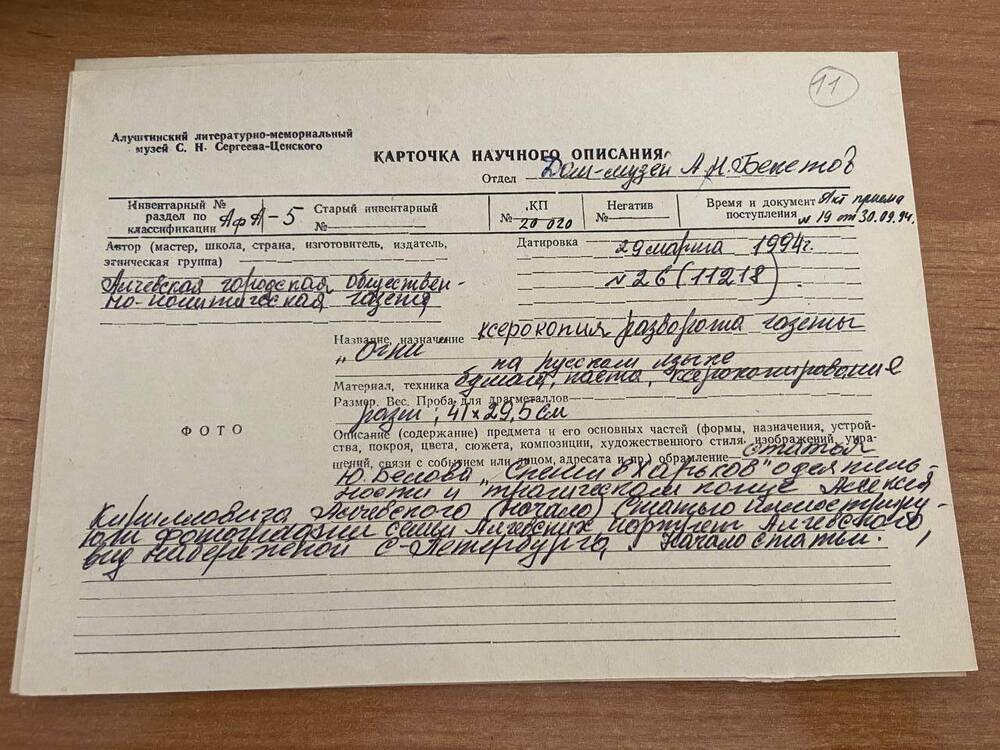 11
Алуштинский литературно-мемориальный
музей С. Н. Сергеева-Ценского
КАРТОЧКА НАУЧНОГО ОПИСАНИЯ
Отдел Дом-музей А.Н. Бекетов
Инвентарный №
раздел по
классификации АфА-5
Старый инвентарный
№
КП
№ 20 020
Негатив
№
Время и документ Акт приема
поступления № 19 от 30.09.94.
Автор (мастер, школа, страна, изготовитель, издатель,
этническая группа)
Алчевская городская обществен-
но-политическая газета
Датировка 29 марта 1994г.
№ 26 (11218)
Название, назначение ксерокопия разворота газеты
„Огни"
на русском языке
Материал, техника бумага, паста, ксерокопирование
Размер. Вес. Проба для драгметаллов
разм: 41×29,5 см
ФОТО
Описание (содержание) предмета и его основных частей (формы, назначения, устрой-
ства, покроя, цвета, сюжета, композиции, художественного стиля, изображений, укра-
шений, связи с событием или лицом, адресата и пр.) обрамление статья
Ю. Белова „ в Харьков" о деятель-
ности и трагическом конце Алексея
Кирилловича Алчевского (начало) Статью иллюстриру-
юли фотографии семьи Алчевских портрет Алчевского,
вид набережной С-Петербурга. Начало статьи.